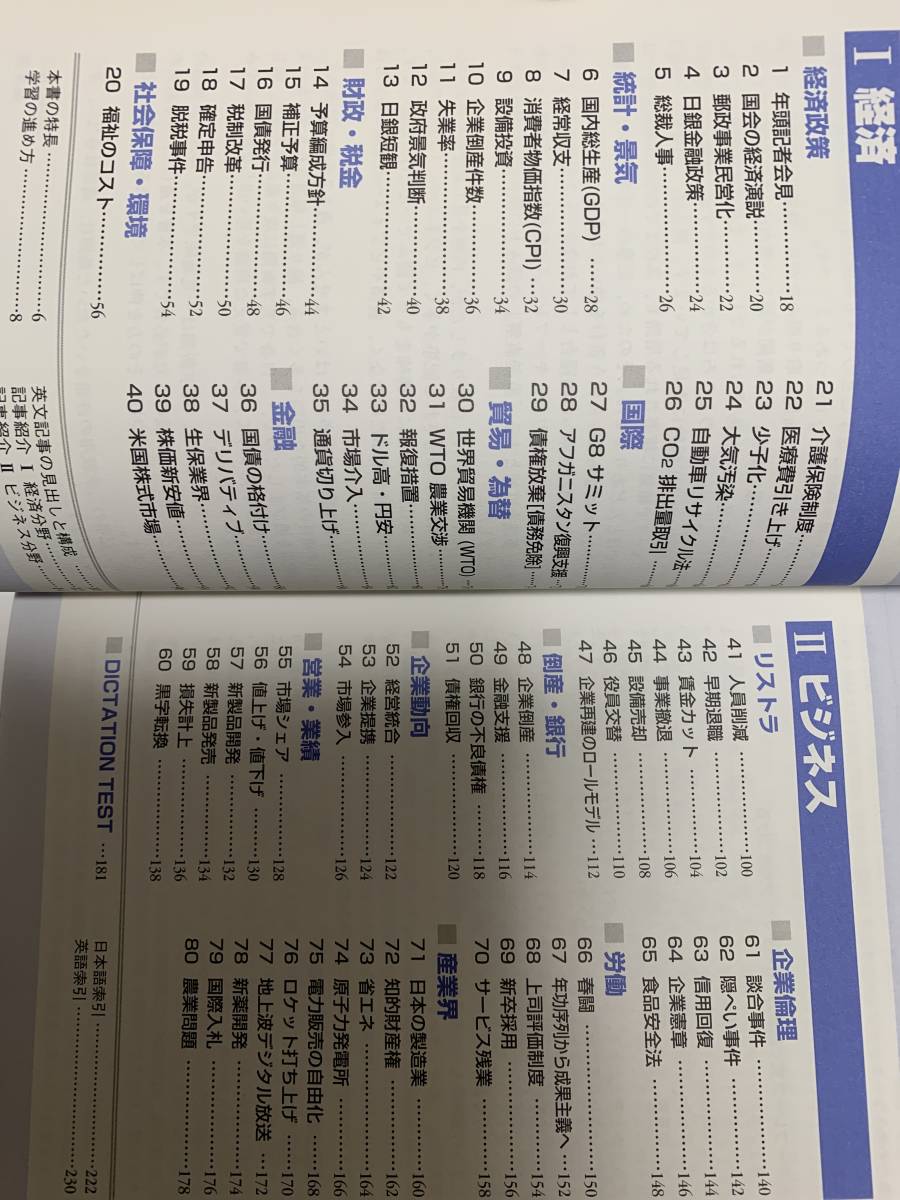 I 経済
経済政策
1 年頭記者会見 ………… 18
2 国会の経済演説 ……… 20
3 郵政事業民営化 ……… 22
4 日銀金融政策 ………… 24
5 総裁人事 ……………… 26
統計・景気
6 国内総生産(GDP) …… 28
7 経常収支 ……………… 30
8 消費者物価指数(CPI) … 32
9 設備投資 ……………… 34
10 企業倒産件数 ………… 36
11 失業率 ………………… 38
12 政府景気判断 ………… 40
13 日銀短観 ……………… 42
財政・税金
14 予算編成方針 ………… 44
15 補正予算 ……………… 46
16 国債発行 ……………… 48
17 税制改革 ……………… 50
18 確定申告 ……………… 52
19 脱税事件 ……………… 54
社会保障・環境
20 福祉のコスト ………… 56
21 介護保険制度 …………
22 医療費引き上げ ………
23 少子化 …………………
24 大気汚染 ………………
25 自動車リサイクル法 …
26 CO2 排出量取引 ………
国際
27 G8 サミット …………
28 アフガニスタン復興支援 …
29 債権放棄[債務免除] …
貿易・為替
30 世界貿易機関 (WTO) …
31 WTO 農業交渉 ………
32 報復措置 ………………
33 ドル高・円安 …………
34 市場介入 ………………
35 通貨切り上げ …………
金融
36 国債の格付け …………
37 デリバティブ …………
38 生保業界 ………………
39 株価新安値 ……………
40 米国株式市場 …………
本書の特長 ……………… 6
学習の進め方 …………… 8
英文記事の見出しと構成 …
記事紹介 I 経済分野 ……
記事紹介 II ビジネス分野 …
II ビジネス
リストラ
41 人員削減 …………… 100
42 早期退職 …………… 102
43 賃金カット ………… 104
44 事業撤退 …………… 106
45 設備売却 …………… 108
46 役員交替 …………… 110
47 企業再建のロールモデル … 112
倒産・銀行
48 企業倒産 …………… 114
49 金融支援 …………… 116
50 銀行の不良債権 …… 118
51 債権回収 …………… 120
企業動向
52 経営統合 …………… 122
53 企業提携 …………… 124
54 市場参入 …………… 126
営業・業績
55 市場シェア ………… 128
56 値上げ・値下げ …… 130
57 新製品開発 ………… 132
58 新製品発売 ………… 134
59 損失計上 …………… 136
60 黒字転換 …………… 138
企業倫理
61 談合事件 …………… 140
62 隠ぺい事件 ………… 142
63 信用回復 …………… 144
64 企業憲章 …………… 146
65 食品安全法 ………… 148
労働
66 春闘 ………………… 150
67 年功序列から成果主義へ … 152
68 上司評価制度 ……… 154
69 新卒採用 …………… 156
70 サービス残業 ……… 158
産業界
71 日本の製造業 ……… 160
72 知的財産権 ………… 162
73 省エネ ……………… 164
74 原子力発電所 ……… 166
75 電力販売の自由化 … 168
76 ロケット打ち上げ … 170
77 地上波デジタル放送 … 172
78 新薬開発 …………… 174
79 国際入札 …………… 176
80 農業問題 …………… 178
DICTATION TEST … 181
日本語索引 …………… 222
英語索引 ……………… 230